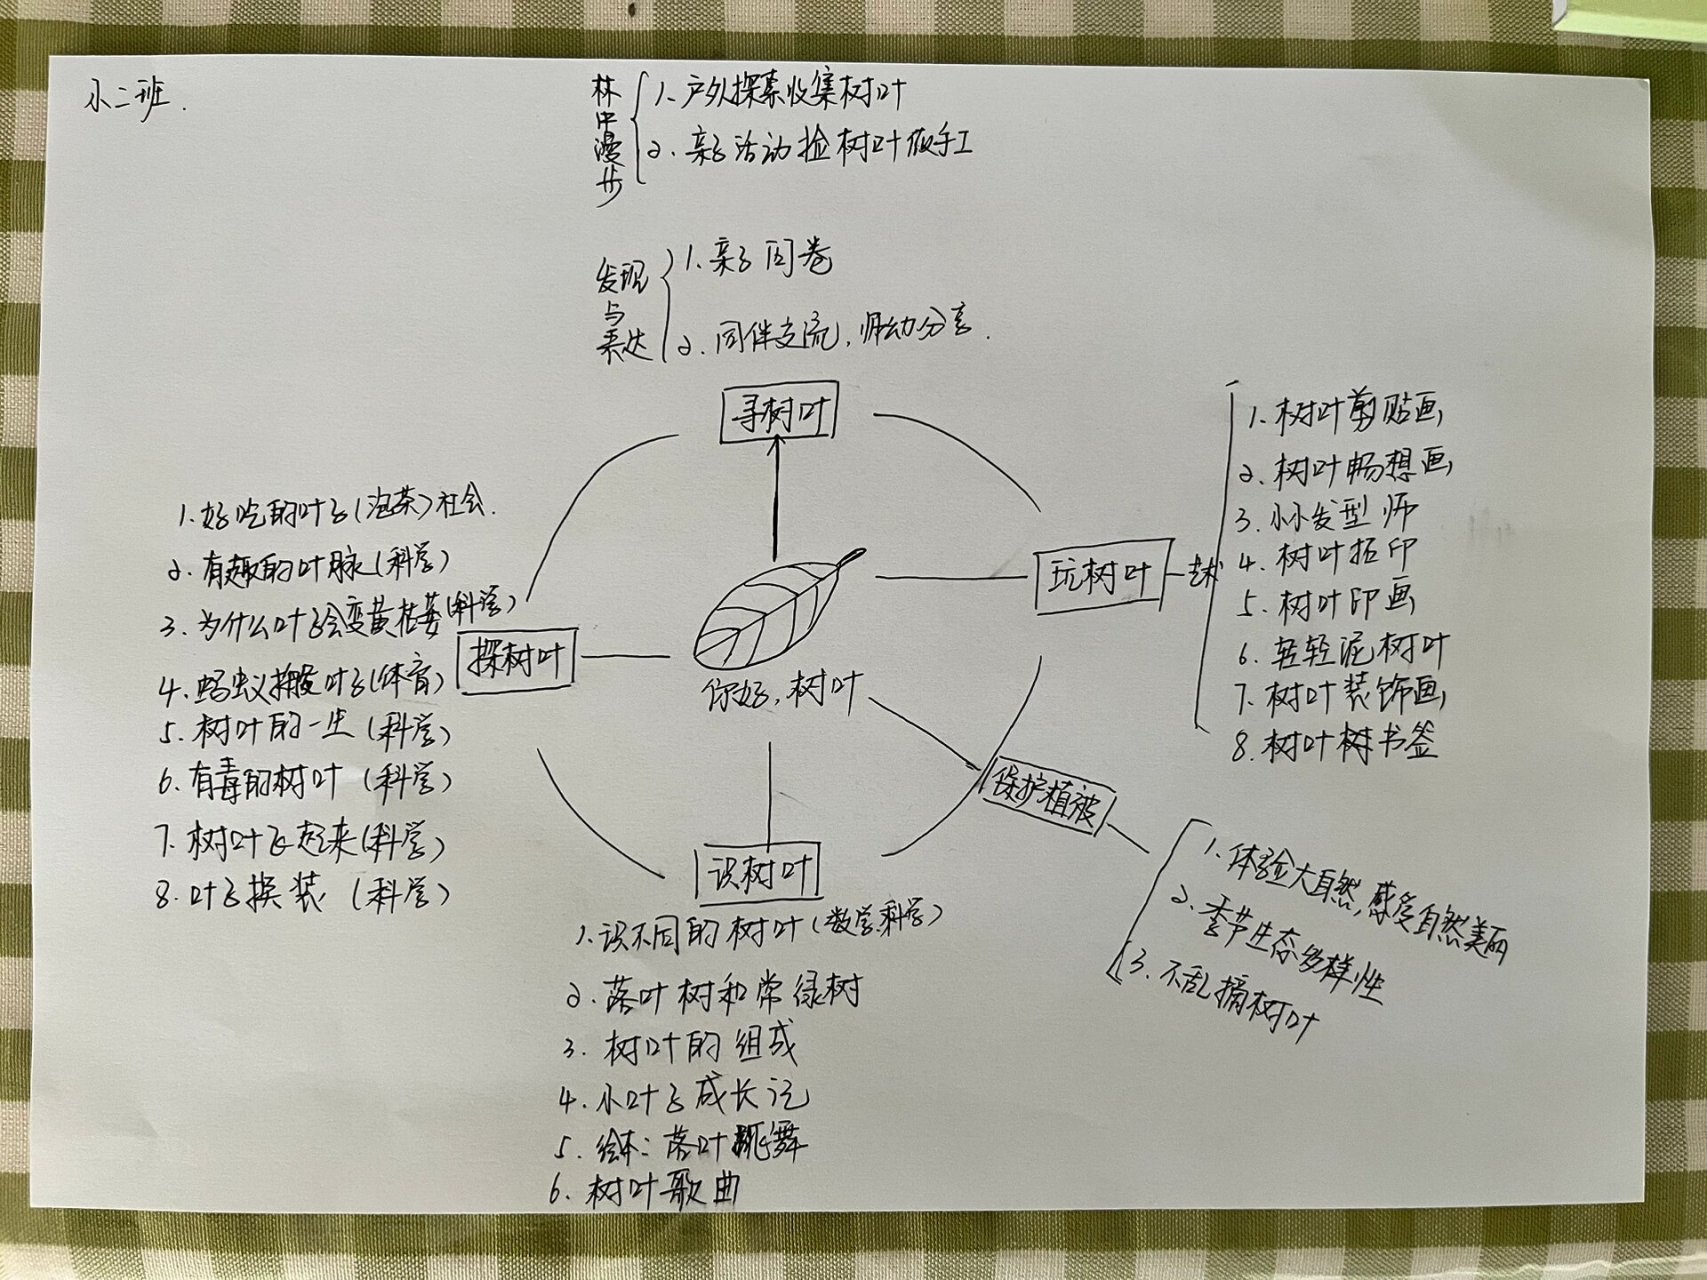 小二班.
林中漫步
1. 户外探索收集树叶
2. 亲子活动捡树叶做手工
发现
与
表达
1. 亲子问卷
2. 同伴交流,师幼分享.
寻树叶
1. 好吃的叶子(泡茶)社会.
2. 有趣的叶脉(科学)
3. 为什么叶子会变黄枯萎(科学)
4. 蚂蚁搬叶子(体育)
5. 树叶的一生(科学)
6. 有毒的树叶(科学)
7. 树叶飞起来(科学)
8. 叶子换装(科学)
探树叶
你好,树叶
玩树叶
艺术
1. 树叶剪贴画
2. 树叶畅想画
3. 小小发型师
4. 树叶拓印
5. 树叶印画
6. 轻轻泥树叶
7. 树叶装饰画
8. 树叶树书签
保护植被
1. 体验大自然,感受自然美丽
2. 季节生态多样性
3. 不乱摘树叶
识树叶
1. 识不同的树叶(数学.科学)
2. 落叶树和常绿树
3. 树叶的组成
4. 小叶子成长记
5. 绘本:落叶跳舞
6. 树叶歌曲